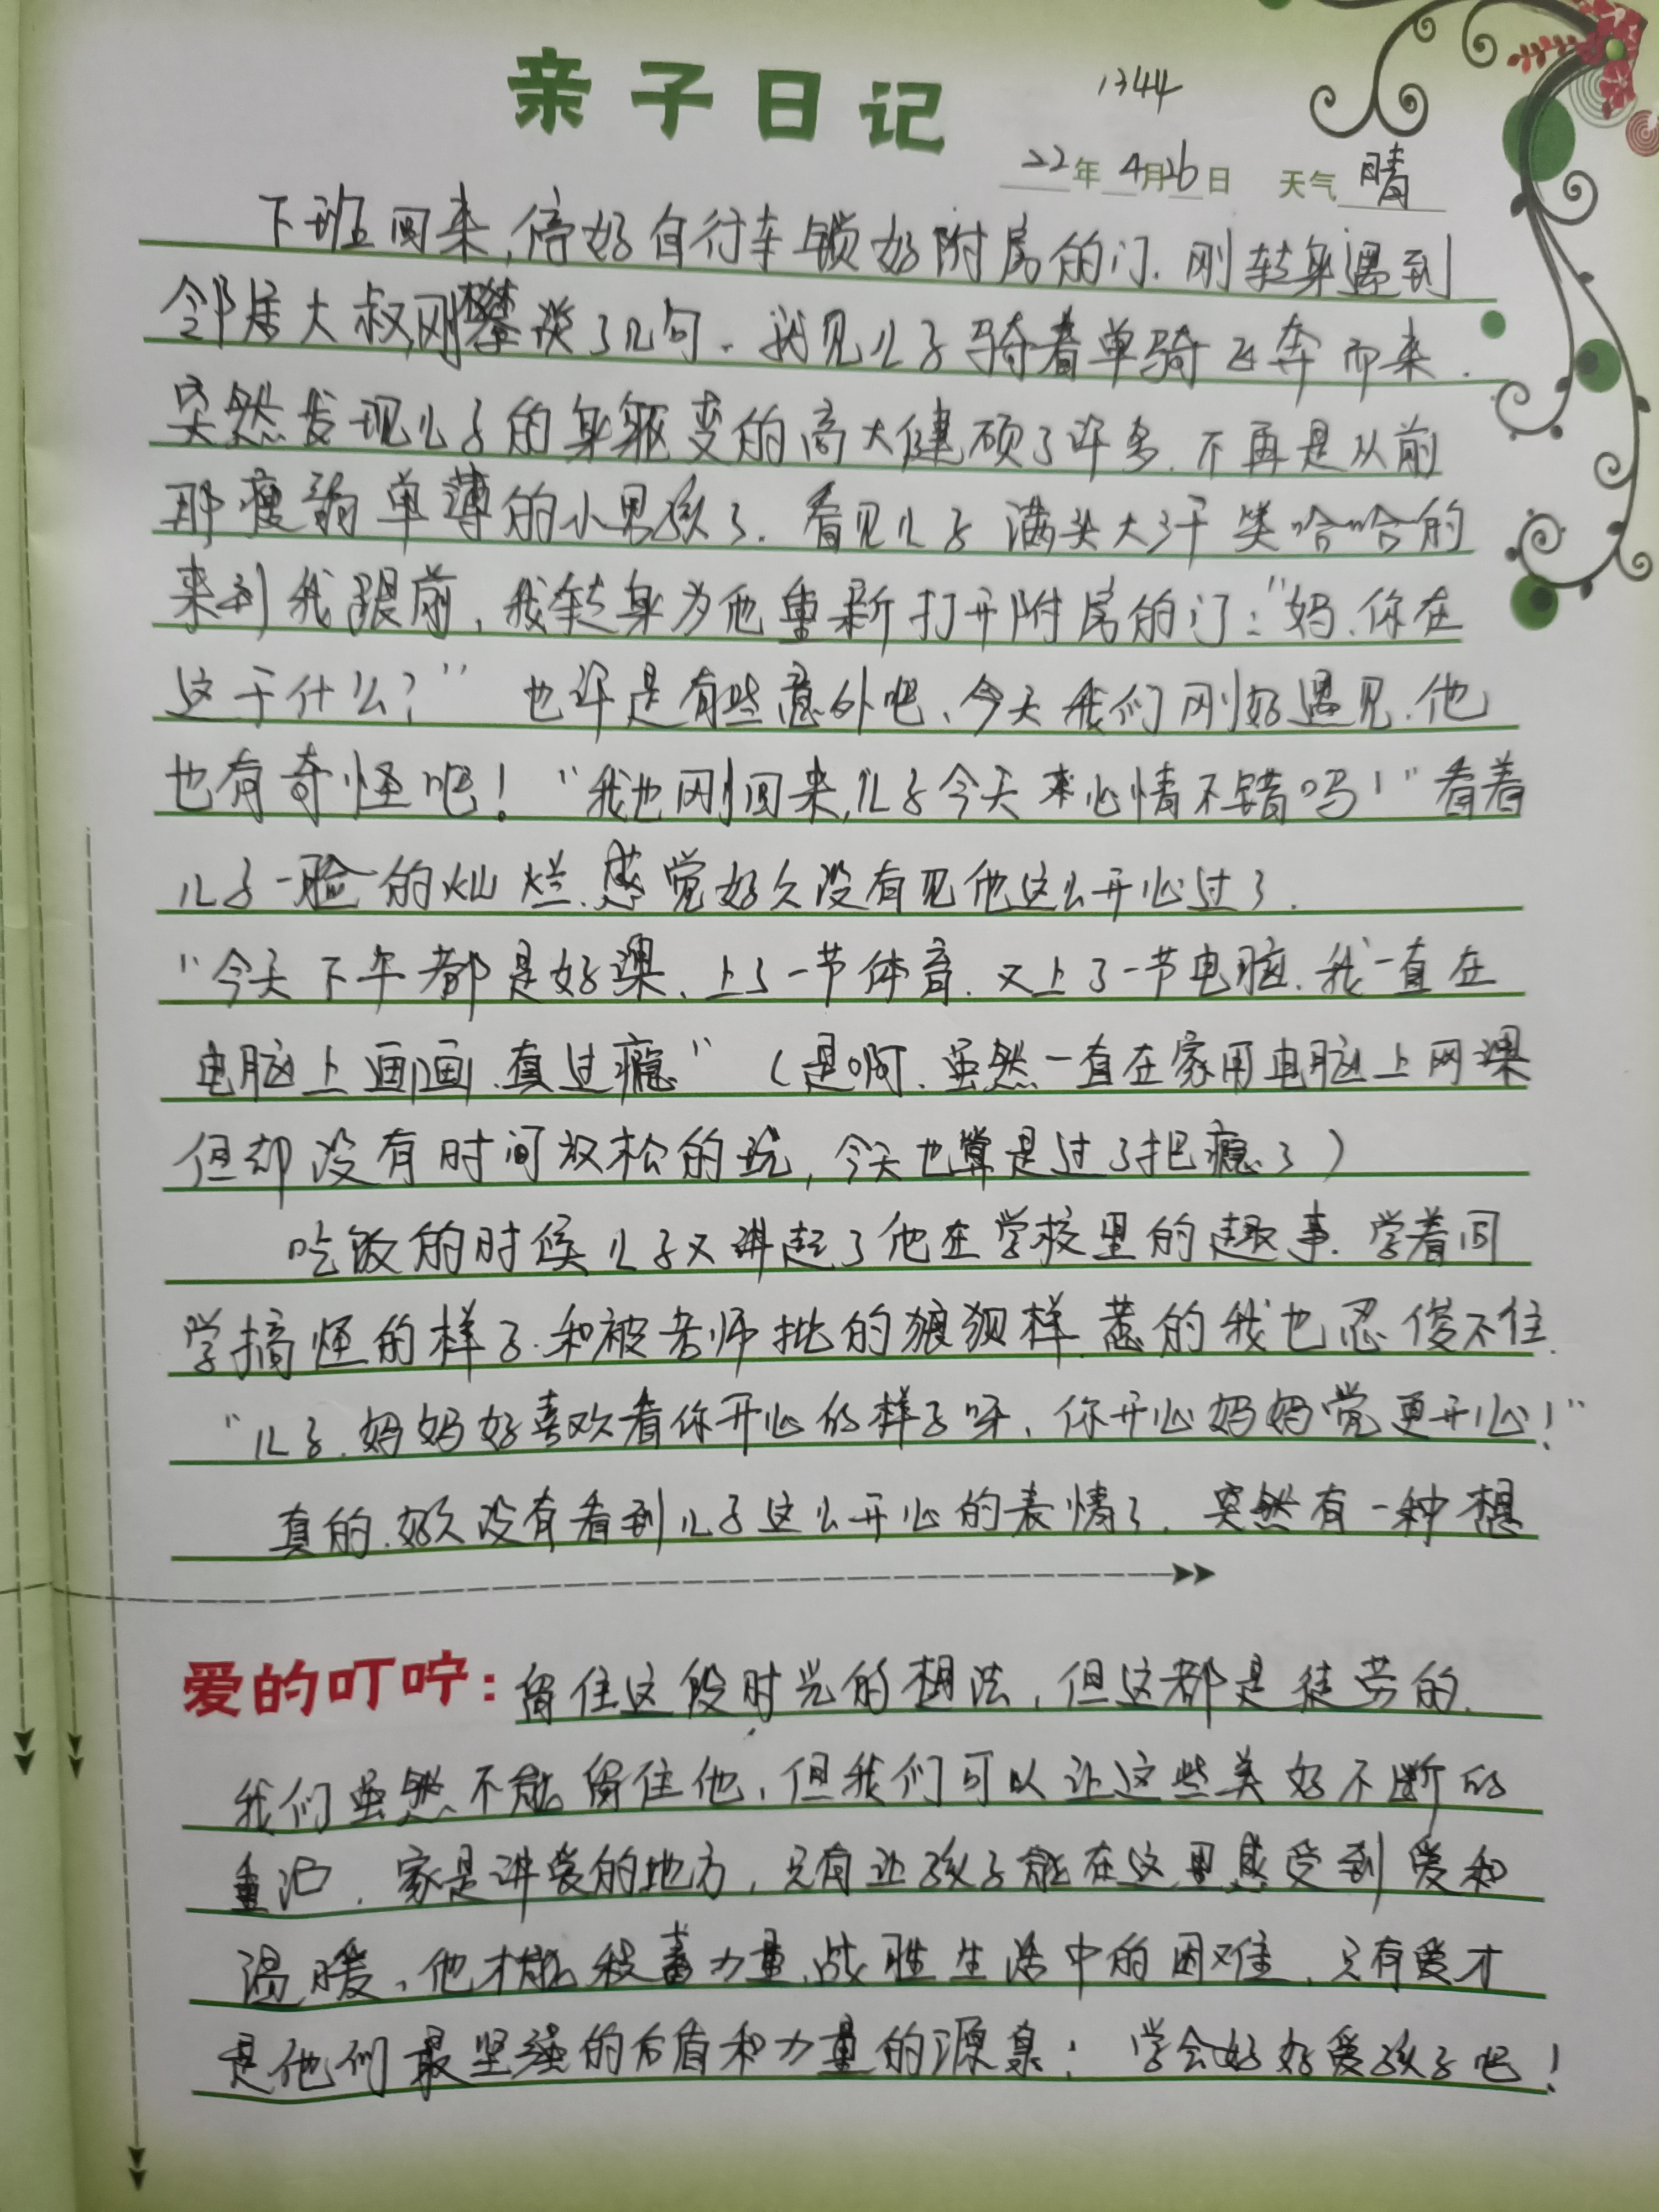 亲子日记
1344
22年4月26日 天气晴
下班回来,停好自行车锁好附房的门.刚转身遇到
邻居大叔,刚攀谈了几句.我见儿子骑着单骑飞奔而来.
突然发现儿子的身躯变的高大健硕了许多.不再是从前
那瘦弱单薄的小男孩了.看见儿子满头大汗笑哈哈的
来到我跟前,我转身为他重新打开附房的门:"妈.你在
这干什么?" 也许是有些意外吧、今天我们刚好遇见.他
也有奇怪吧! "我也刚回来,儿子今天来心情不错吗!"看着
儿子一脸的灿烂.感觉好久没有见他这么开心过了.
"今天下午都是好课、上了一节体育.又上了一节电脑.我一直在
电脑上画画.真过瘾" (是啊.虽然一直在家用电脑上网课
但却没有时间放松的玩,今天也算是过了把瘾了)
吃饭的时候儿子又讲起了他在学校里的趣事.学着同
学搞怪的样子.和被老师批的狼狈样.惹的我也忍俊不住.
"儿子.妈妈好喜欢看你开心的样子呀、你开心妈妈觉更开心!"
真的.好久没有看到儿子这么开心的表情了.突然有一种想
爱的叮咛:留住这段时光的想法,但这都是徒劳的.
我们虽然不能留住他,但我们可以让这些美好不断的
重沪.家是讲爱的地方,只有让孩子能在这里感受到爱和
温暖,他才能积蓄力量.战胜生活中的困难.只有爱才
是他们最坚强的后盾和力量的源泉:学会好好爱孩子吧!